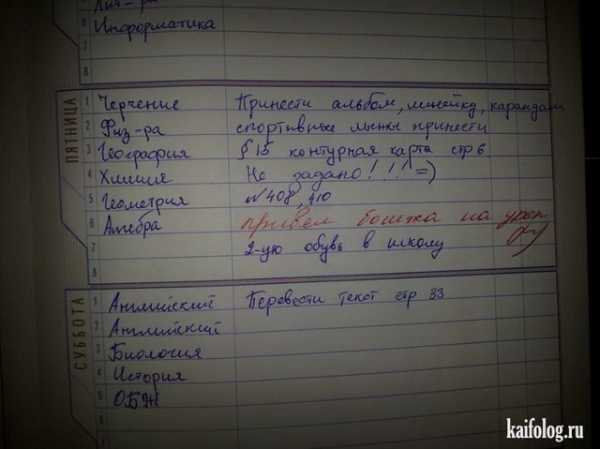 Лит-ра
6 Информатика
7
8
ПЯТНИЦА
1 Черчение Принести альбом, линейку, карандаш
2 Физ-ра спортивные лыжи принести
3 География § 15 контурная карта стр 6.
4 Химия Не задано!!! =)
5 Геометрия №408, 410
6 Алгебра привёл бомжа на урок
7 2-ую обувь в школу
8
СУББОТА
1 Английский Перевести текст стр 33
2 Английский
3 Биология
4 История
5 ОБЖ
6
7
kaifolog.ru